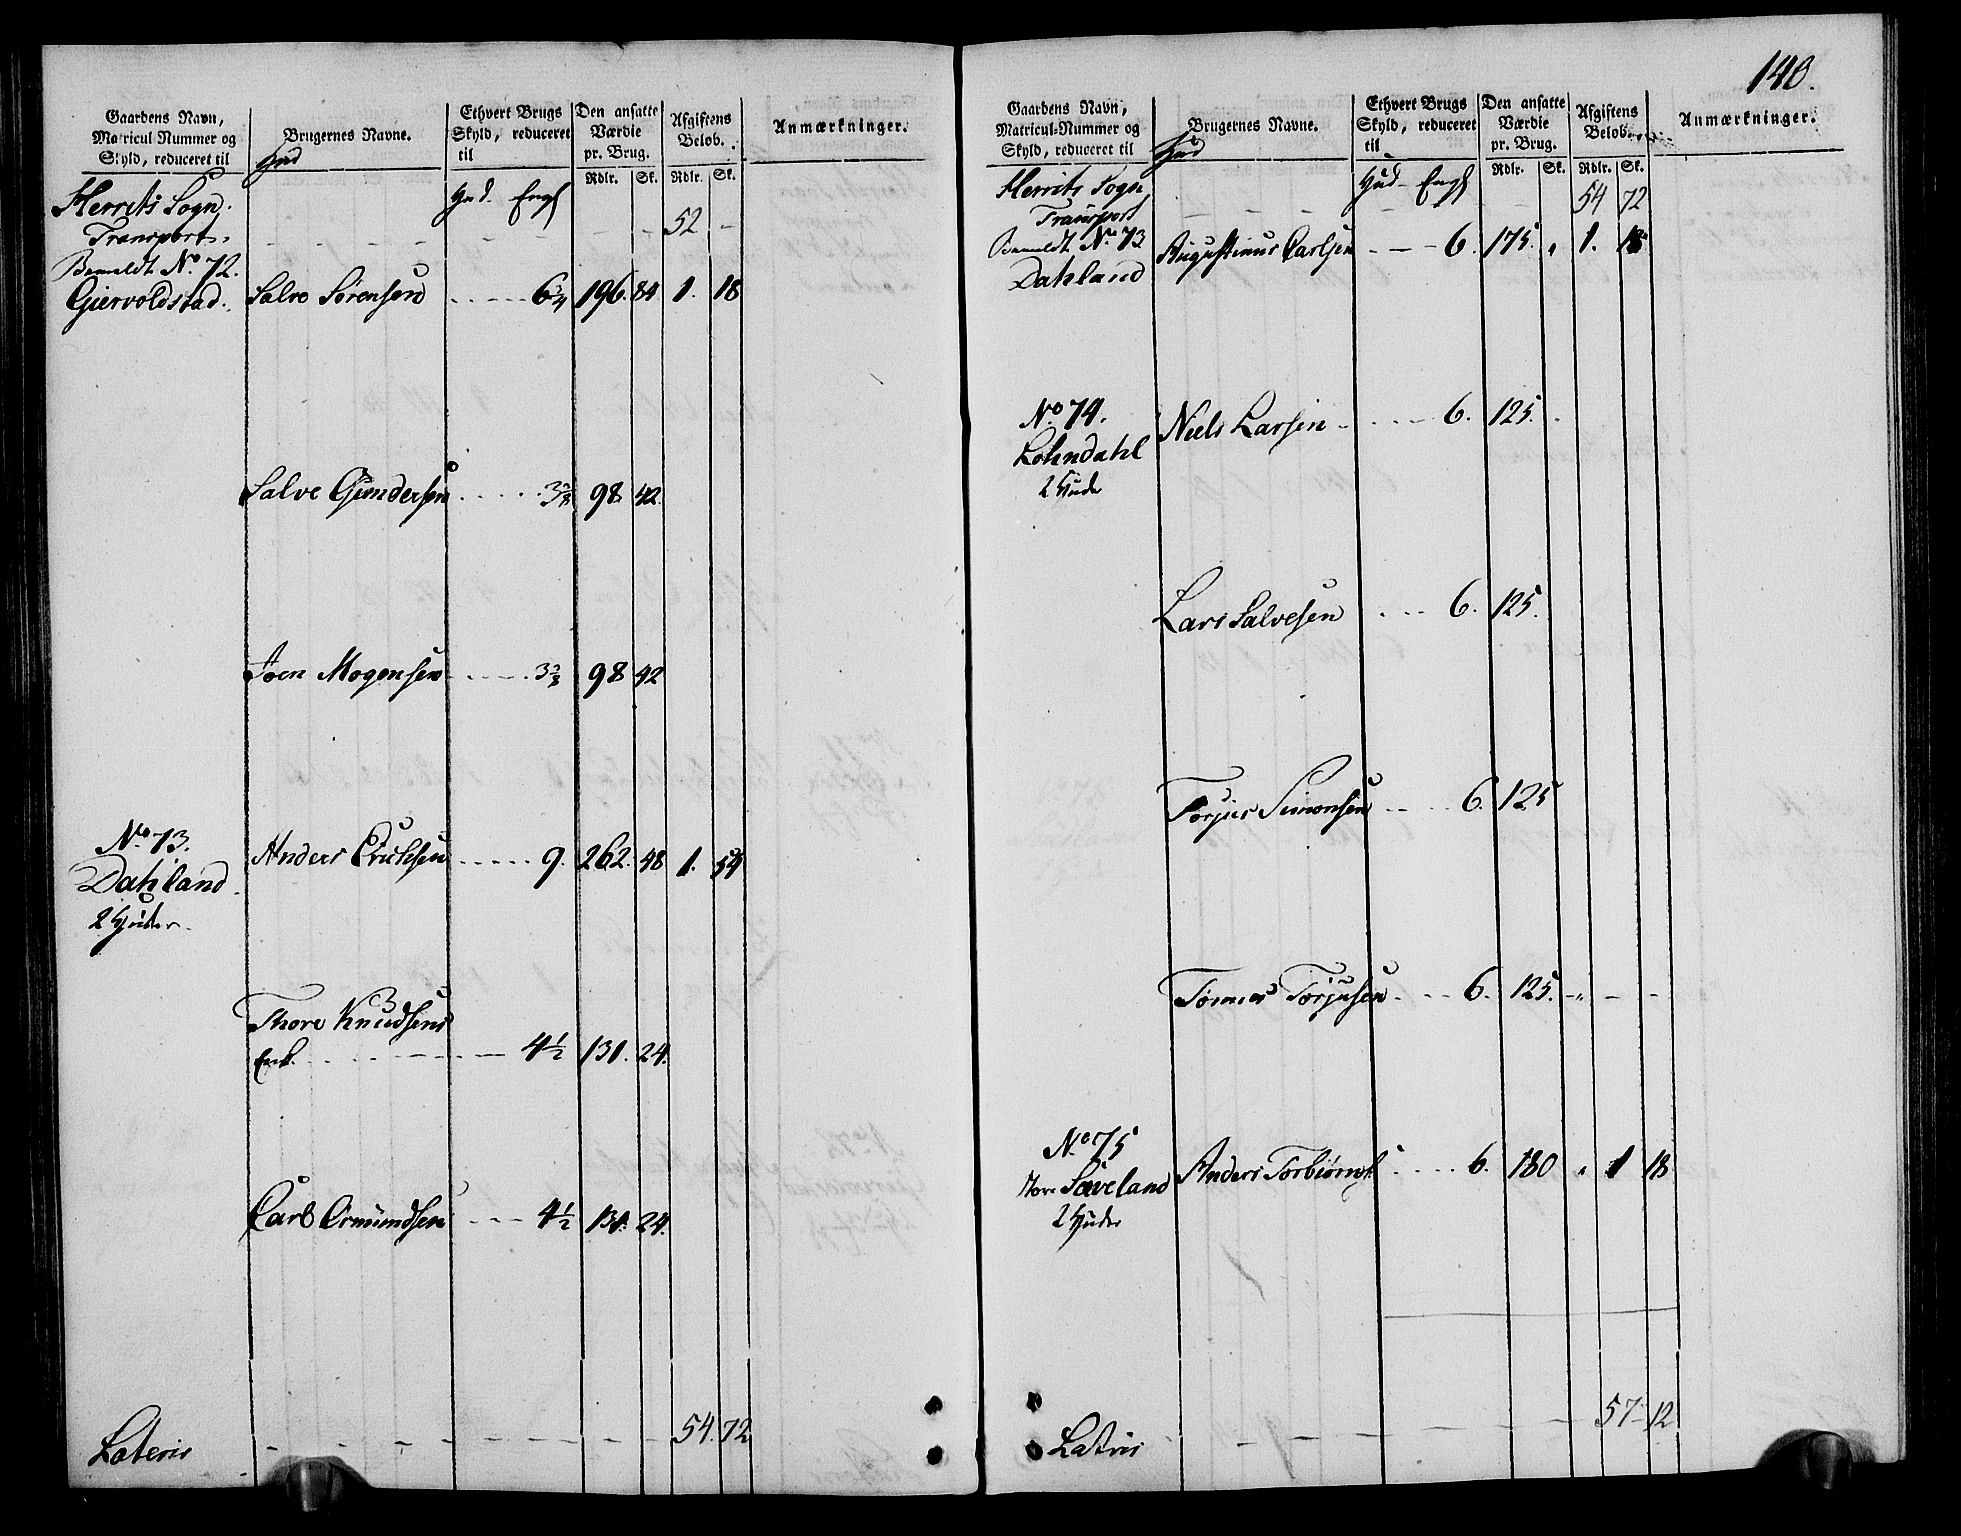 Gaardens Navn,
Matricul-Nummer og
Skyld, reduceret til
Hud
Brugernes Navne.
Ethvert Brugs
Skyld, reduceret
til
Hud Eng
Den ansatte
Værdie
pr. Brug.
Rdlr. Sk.
Afgiftens
Beløb.
Rdlr. Sk.
Anmærkninger.
Herrets Sogn.
Transport. 52 -
Bemeldt No. 72.
Giervoldstad. Salve Sørensen 6 3/4 196. 84 1. 18
Salve Gundersen 3 3/8 98. 42.
Joen Mogensen 3 3/8 98 42
No. 73. Anders Erichsen 9. 262. 48 1. 54
Dahland
2 Huder.
Thore Knudsens
Enk. 4 1/2 131. 24.
Carl Ormundsen 4 1/2 131. 24.
Lateris 54. 72
140.
Gaardens Navn,
Matricul-Nummer og
Skyld, reduceret til
Hud
Brugernes Navne.
Ethvert Brugs
Skyld, reduceret
til
Hud - Eng
Den ansatte
Værdie
pr. Brug.
Rdlr. Sk.
Afgiftens
Beløb.
Rdlr. Sk.
Anmærkninger.
Herrets Sogn
Transport 54 72
Bemeldt No. 73 Augustinus Carlsen 6. 175. " 1. 18
Dahland
No. 74. Niels Larsen 6. 125.
Lohndahl
2 Huder
Lars Salvesen 6. 125.
Torjus Simonsen 6. 125
Tønnes Torjusen 6. 125. - " - -
No. 75
Store Sæveland Anders Torbiørns. 6. 180 " 1 18
2 Huder
Lateris 57 12